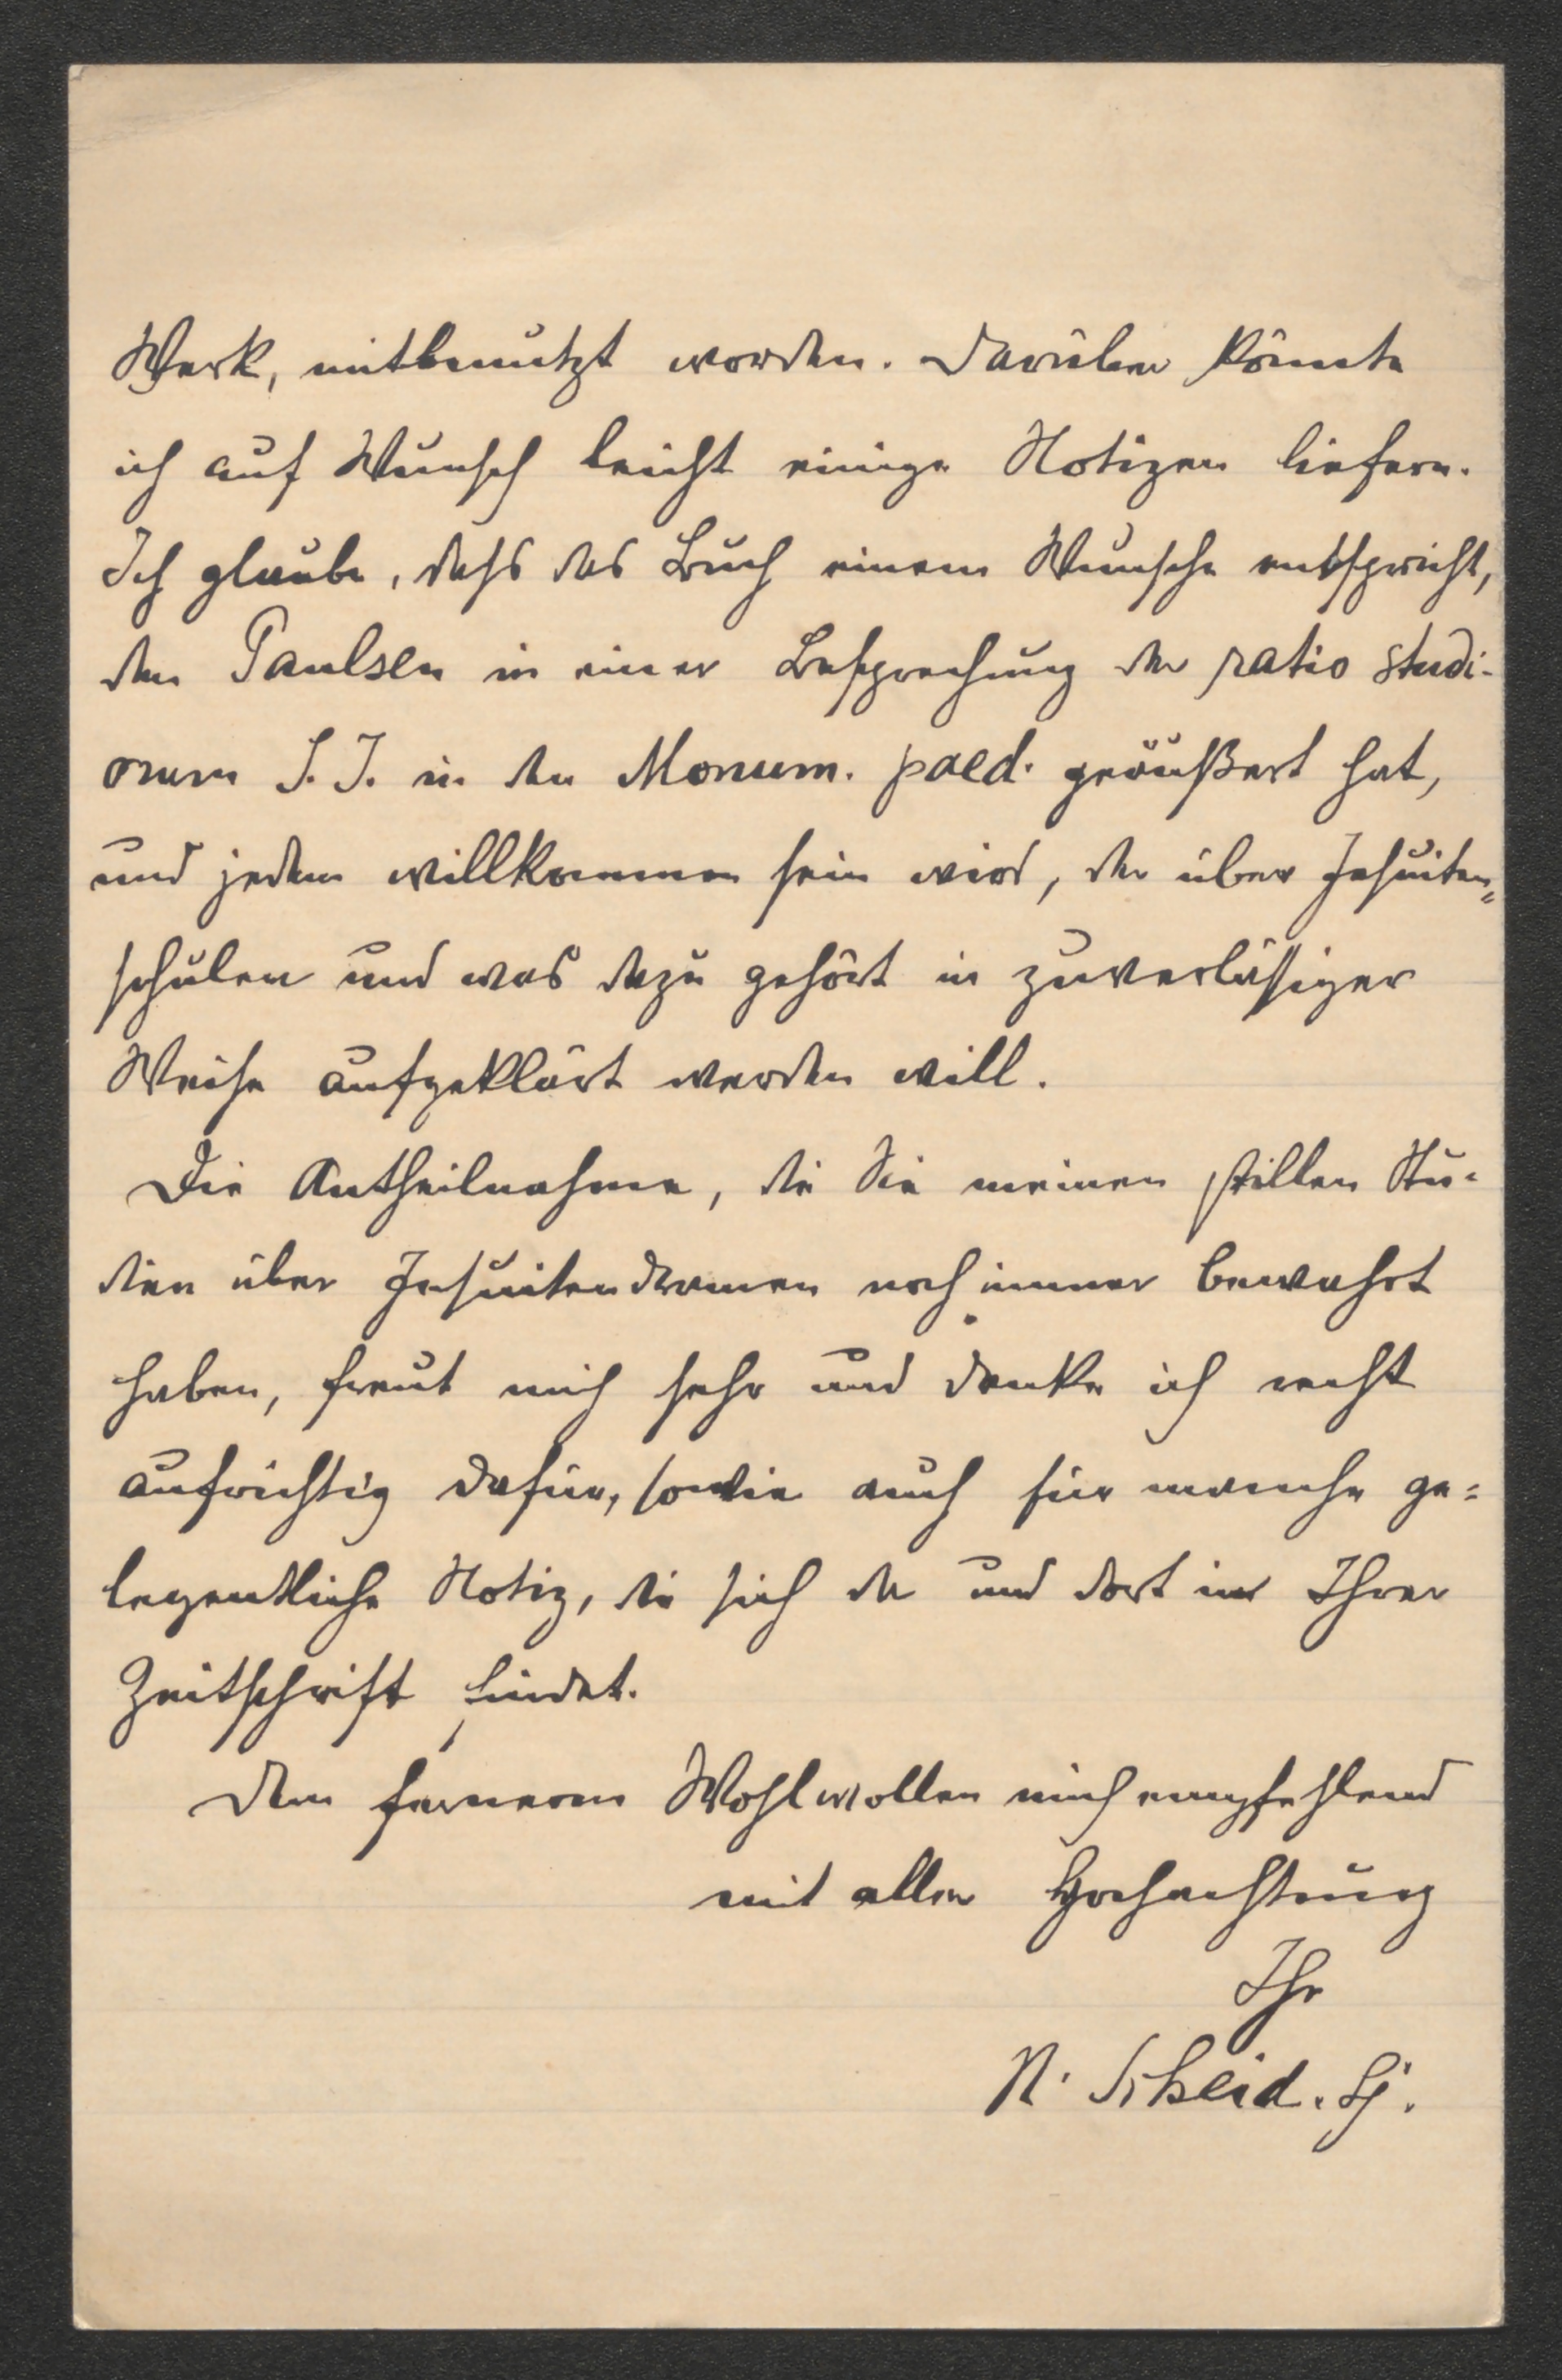 Werk, mitbenutzt worden. Darüber könnte
ich auf Wunsch leicht einige Notizen liefern.
Ich glaube, dass das Buch einem Wunsche entspricht,
den Paulsen in einer Besprechung der ratio studi-
orum S. J. in den Monum. paed. geäußert hat,
und jedem willkommen sein wird, der über Jesuiten=
schulen und was dazu gehört in zuverlässiger
Weise aufgeklärt werden will.
Die Antheilnahme, die Sie meinen stillen Stu-
dien über Jesuitendramen noch immer bewahrt
haben, freut mich sehr und danke ich recht
aufrichtig dafür, sowie auch für manche ge=
legentliche Notiz, die sich da und dort in Ihrer
Zeitschrift findet.
Dem ferneren Wohlwollen mich empfehlend
mit aller Hochachtung
Ihr
N. Scheid. Sj.